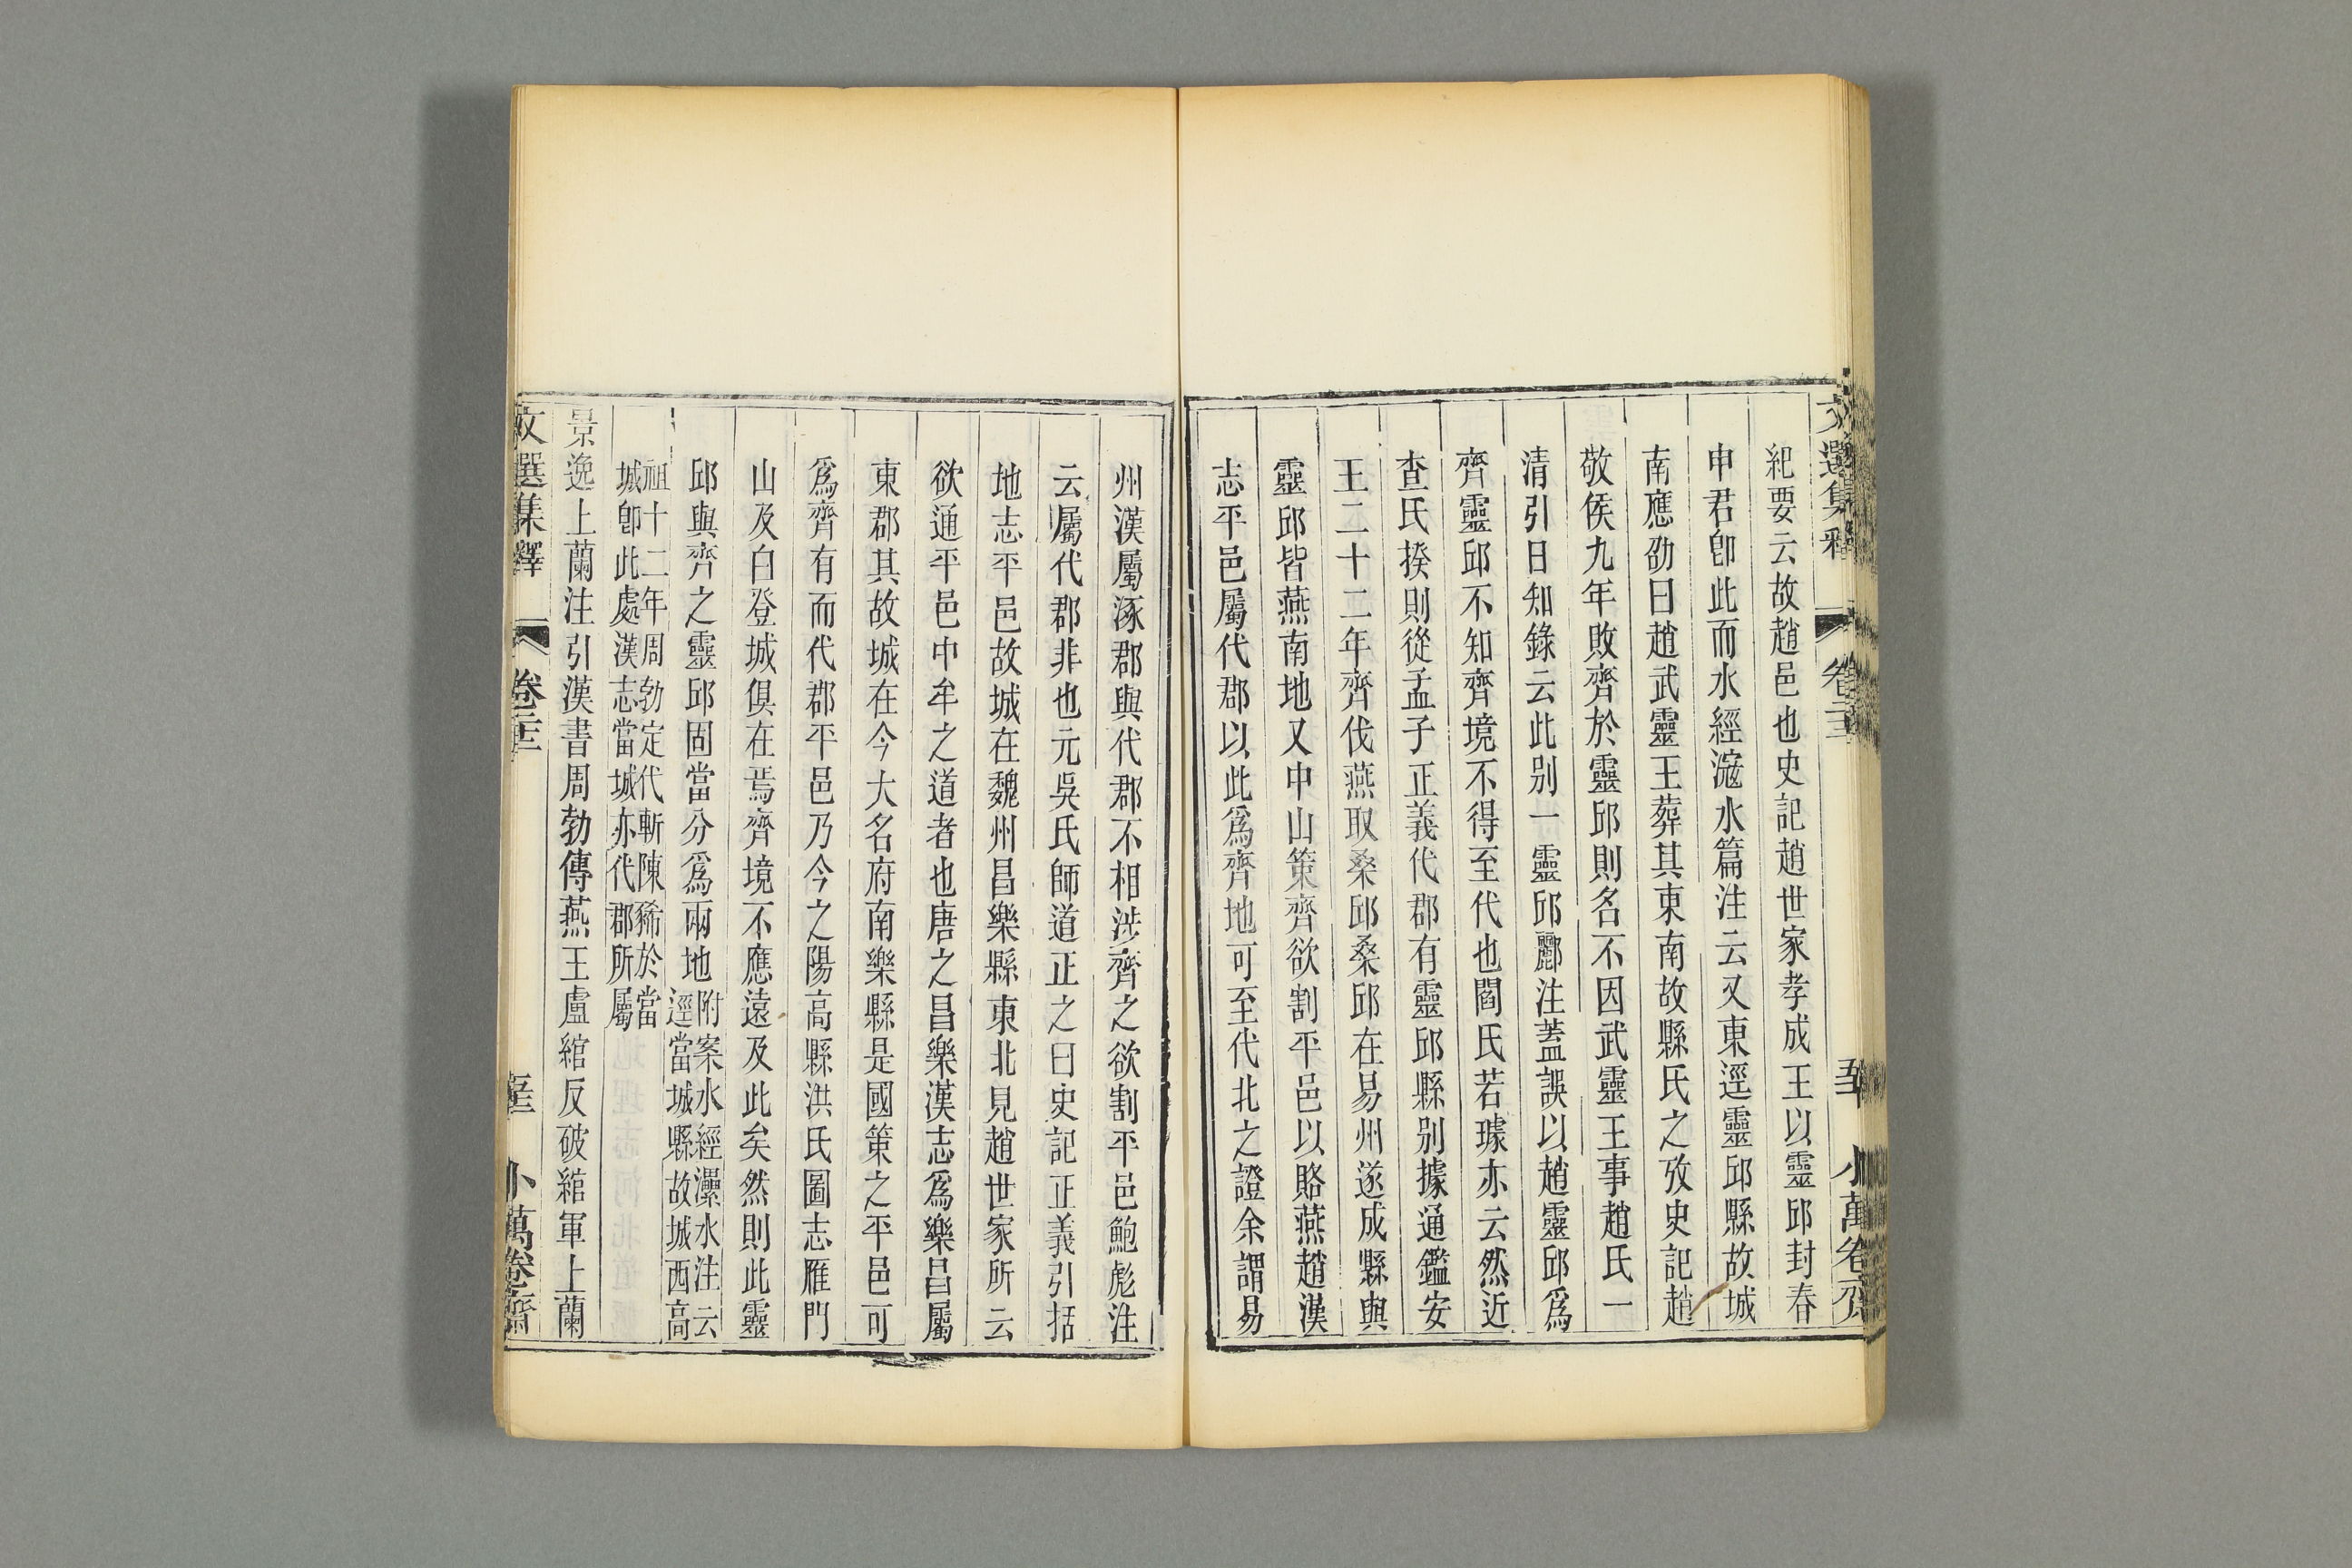 紀要云故趙邑也史記趙世家孝成王以靈邱封春
申君卽此而水經㴲水篇注云又東逕靈邱縣故城
南應劭曰趙武靈王葬其東南故縣氏之攷史記趙
敬侯九年敗齊於靈邱則名不因武靈王事趙氏一
清引日知錄云此别一靈邱酈注蓋誤以趙靈邱爲
齊靈邱不知齊境不得至代也閻氏若璩亦云然近
查氏揆則從孟子正義代郡有靈邱縣别據通鑑安
王二十二年齊伐燕取桑邱桑邱在易州遂成縣與
靈邱皆燕南地又中山策齊欲割平邑以賂燕趙漢
志平邑屬代郡以此爲齊地可至代北之證余謂易
州漢屬涿郡與代郡不相涉齊之欲割平邑鮑彪注
云屬代郡非也元吳氏師道正之曰史記正義引括
地志平邑故城在魏州昌樂縣東北見趙世家所云
欲通平邑中牟之道者也唐之昌樂漢志爲樂昌屬
東郡其故城在今大名府南樂縣是國策之平邑可
爲齊有而代郡平邑乃今之陽高縣洪氏圖志雁門
山及白登城俱在焉齊境不應遠及此矣然則此靈
邱與齊之靈邱固當分爲兩地附案水經㶟水注云
逕當城縣故城西高
祖十二年周勃定代斬陳豨於當
城卽此處漢志當城亦代郡所屬
景逸上蘭注引漢書周勃傳燕王盧綰反破綰軍上蘭
文選集釋
卷二十三
小萬卷齋